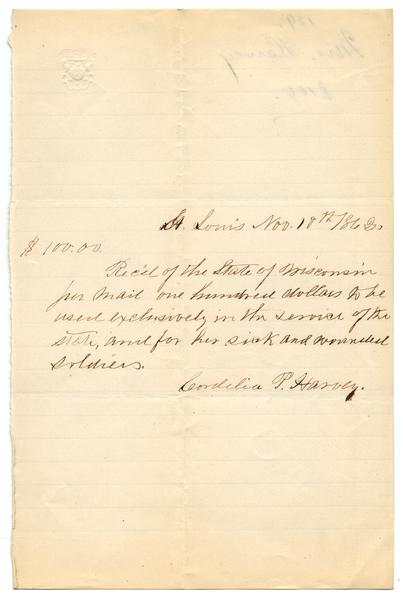 St. Louis Nov. 18th 1862.
$ 100.00.
Rec'd of the State of Wisconsin
per mail one hundred dollars to be
used exclusively in the service of the
state, and for her sick and wounded
soldiers.
Cordelia P. Harvey.